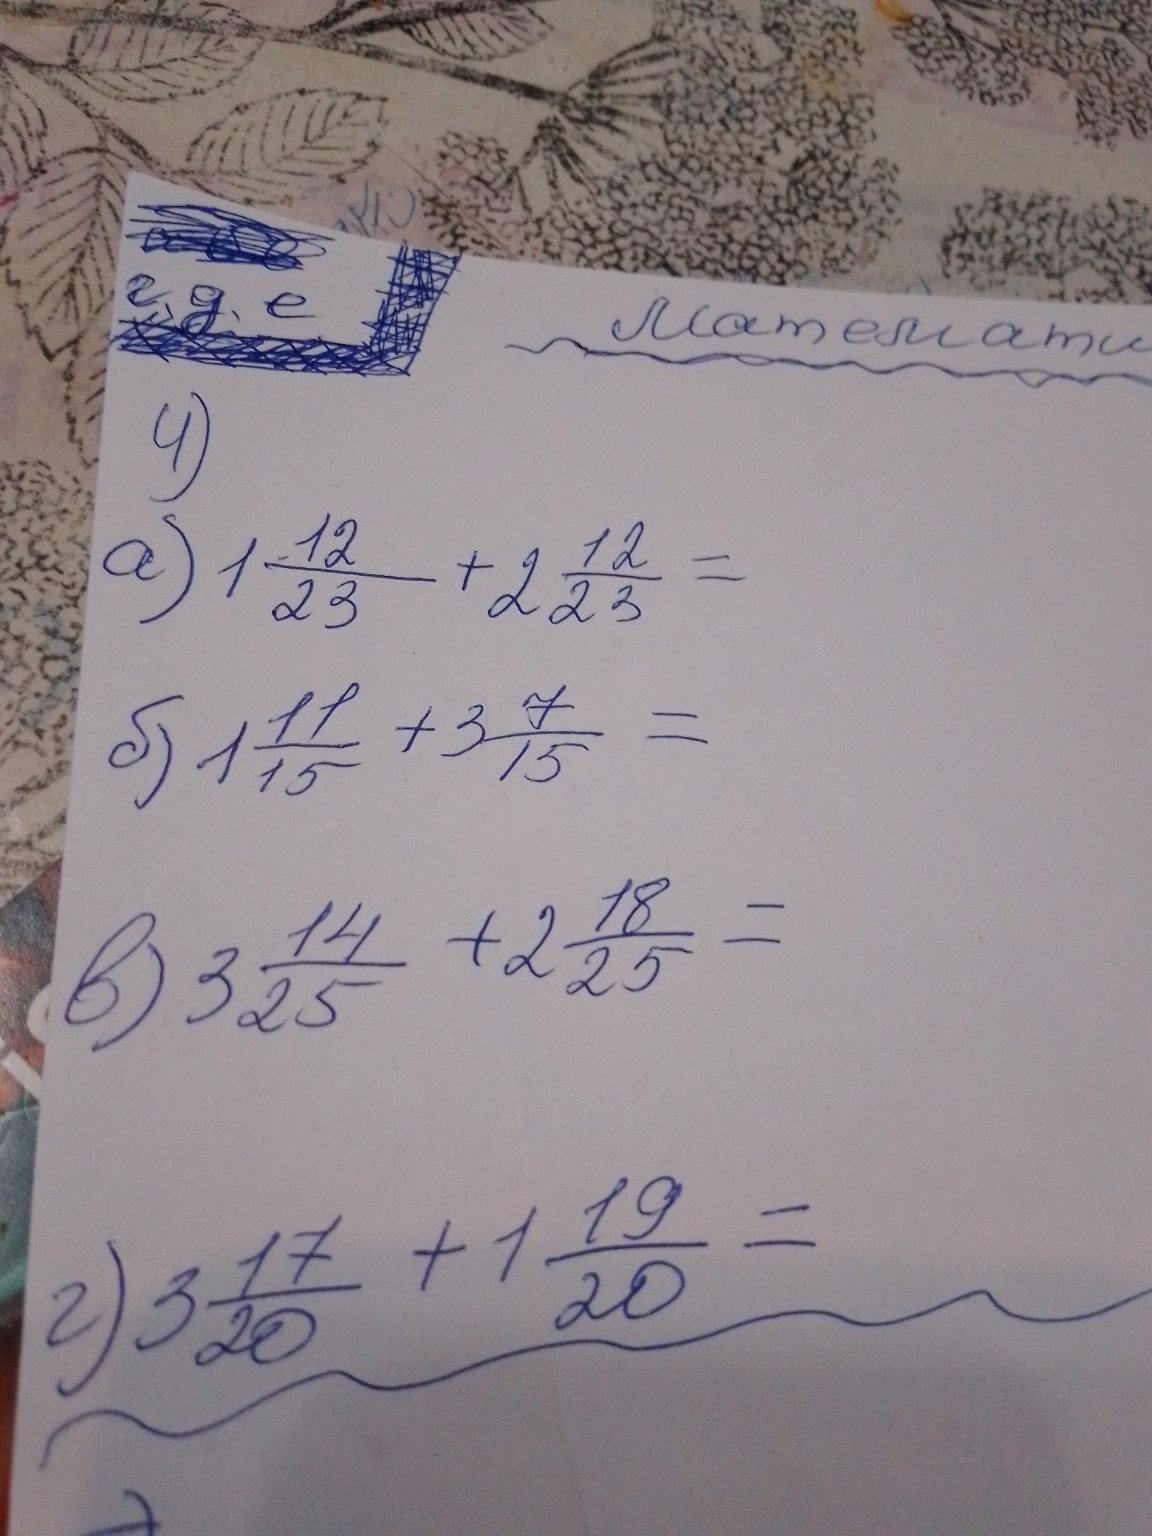 г. д. е
Математи
4)
а) 1 12/23 + 2 12/23 =
б) 1 11/15 + 3 7/15 =
в) 3 14/25 + 2 18/25 =
г) 3 17/20 + 1 19/20 =